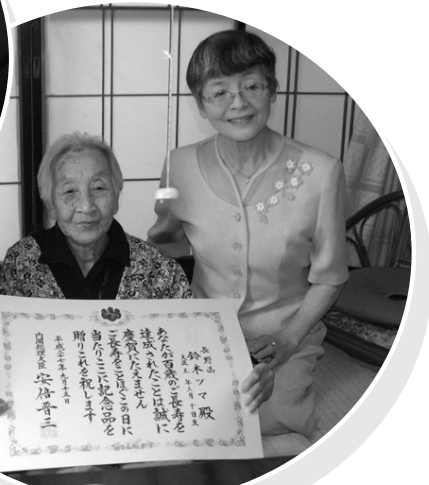 長野県
鈴木ツマ殿
大正五年三月十日生
あなたが百歳のご長寿を
達成されたことは誠に
慶賀にたえません
ご長寿をことほぐこの日に
当たりここに記念品を
贈りこれを祝します
平成二十七年九月十五日
内閣総理大臣 安倍晋三